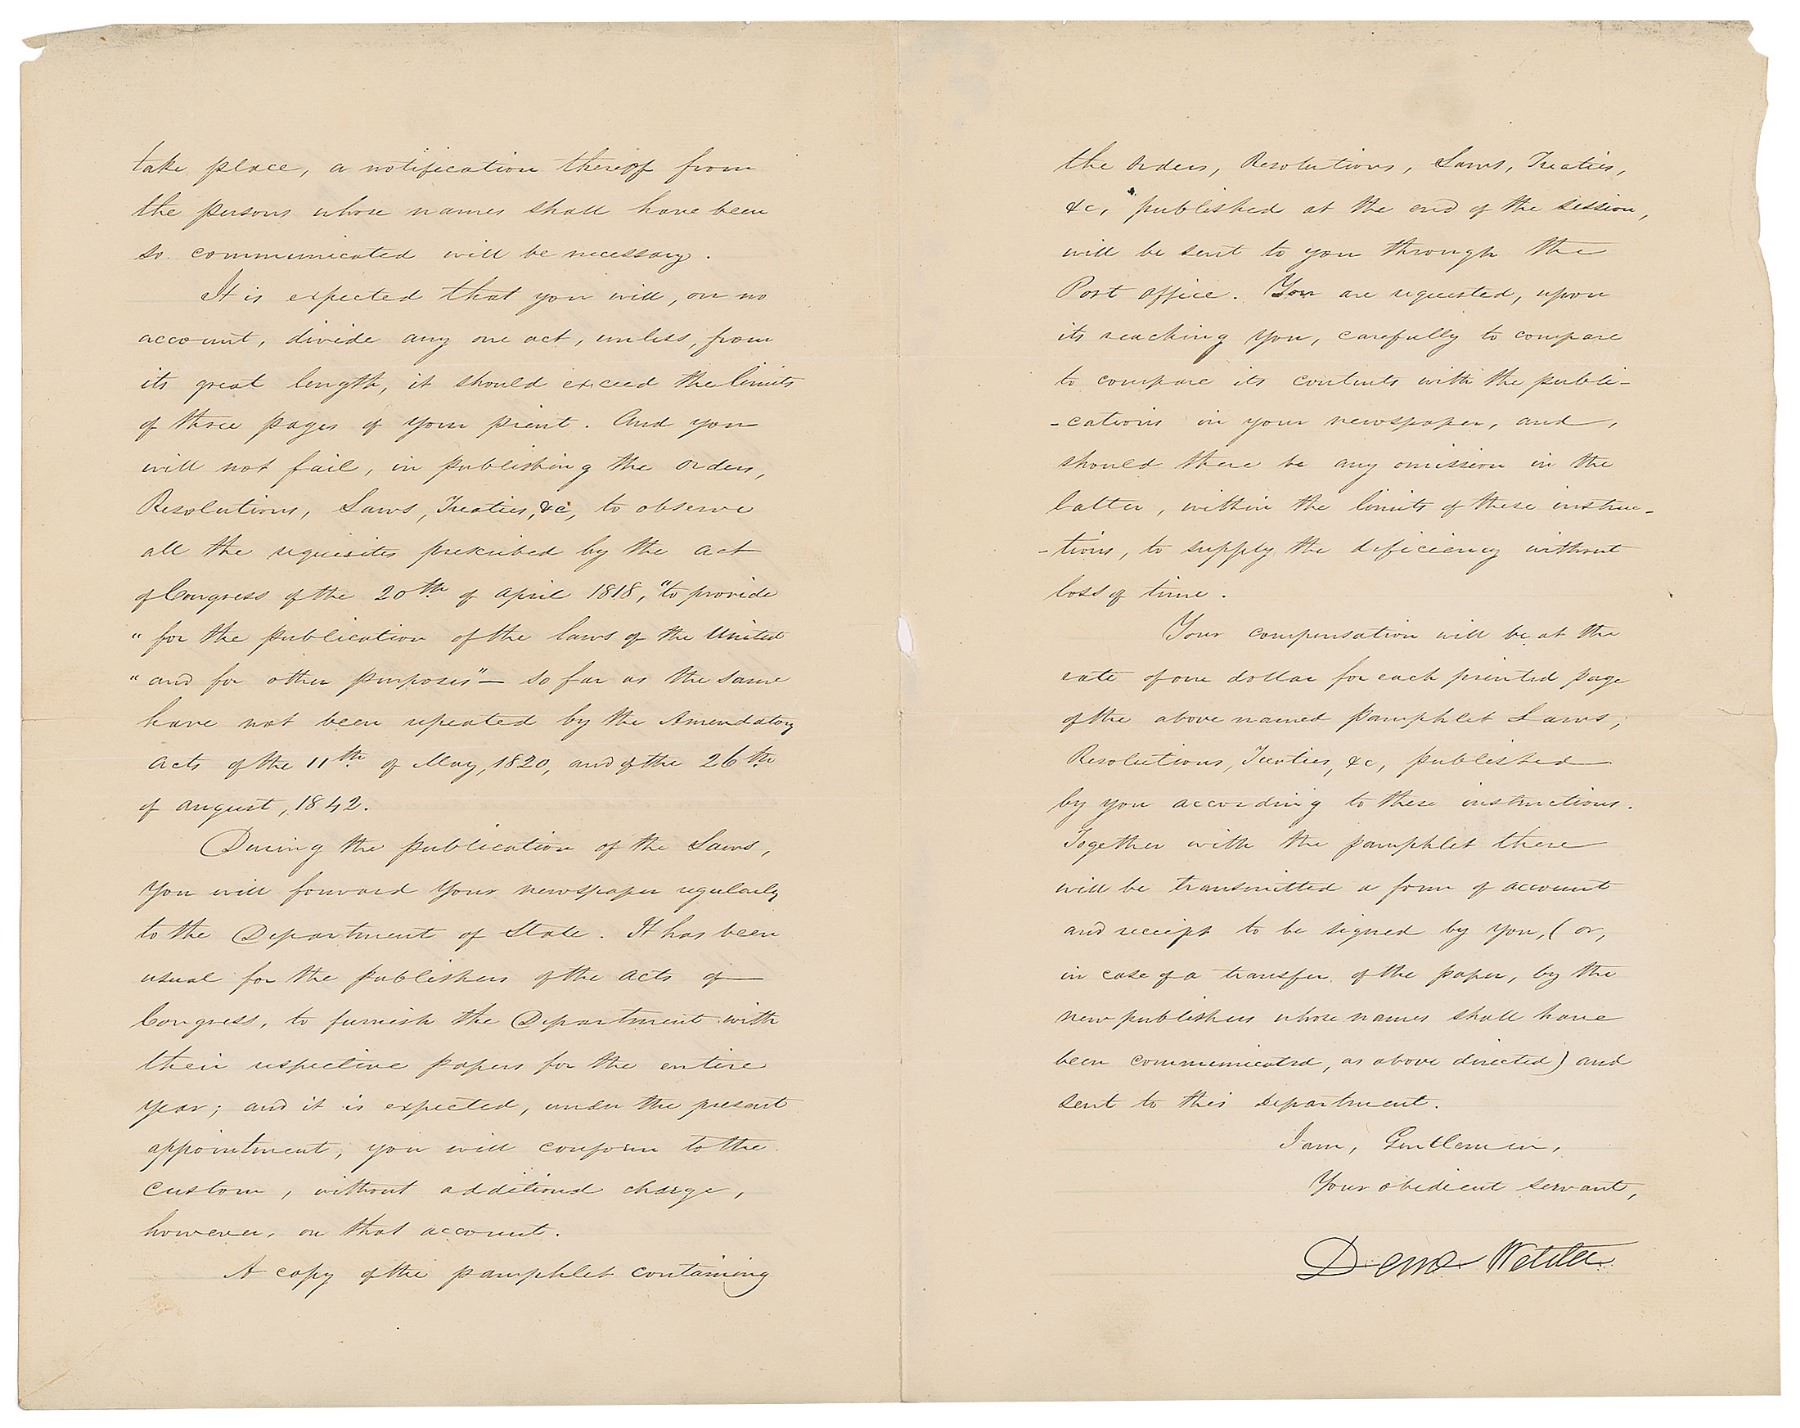 take place, a notification thereof from
the persons whose names shall have been
so communicated will be necessary.
It is expected that you will, on no
account, divide any one act, unless, from
its great length, it should exceed the limits
of three pages of your print. And you
will not fail, in publishing the Orders,
Resolutions, Laws, Treaties, &c, to observe
all the requisites prescribed by the Act
of Congress of the 20th of April 1818, "to provide
" for the publication of the laws of the United
" and for other purposes" — so far as the same
have not been repeated by the Amendatory
Acts of the 11th of May, 1820, and of the 26th
of August, 1842.
During the publication of the Laws,
you will forward your newspaper regularly
to the Department of State. It has been
usual for the publishers of the Acts of
Congress, to furnish the Department with
their respective papers for the entire
year; and it is expected, under the present
appointment, you will conform to the
custom, without additional charge,
however, on that account.
A copy of the pamphlet containing
the Orders, Resolutions, Laws, Treaties,
&c, published at the end of the session,
will be sent to you through the
Post Office. You are requested, upon
its reaching you, carefully to compare
to compare its contents with the publi-
-cations in your newspaper, and,
should there be any omission in the
latter, within the limits of these instruc-
-tions, to supply the deficiency without
loss of time.
Your compensation will be at the
rate of one dollar for each printed page
of the above named pamphlet Laws,
Resolutions, Treaties, &c, published
by you according to these instructions.
Together with the pamphlet there
will be transmitted a form of account
and receipt to be signed by you, (or,
in case of a transfer of the paper, by the
new publishers whose names shall have
been communicated, as above directed) and
sent to this Department.
I am, Gentlemen,
Your obedient servant,
Danl Webster